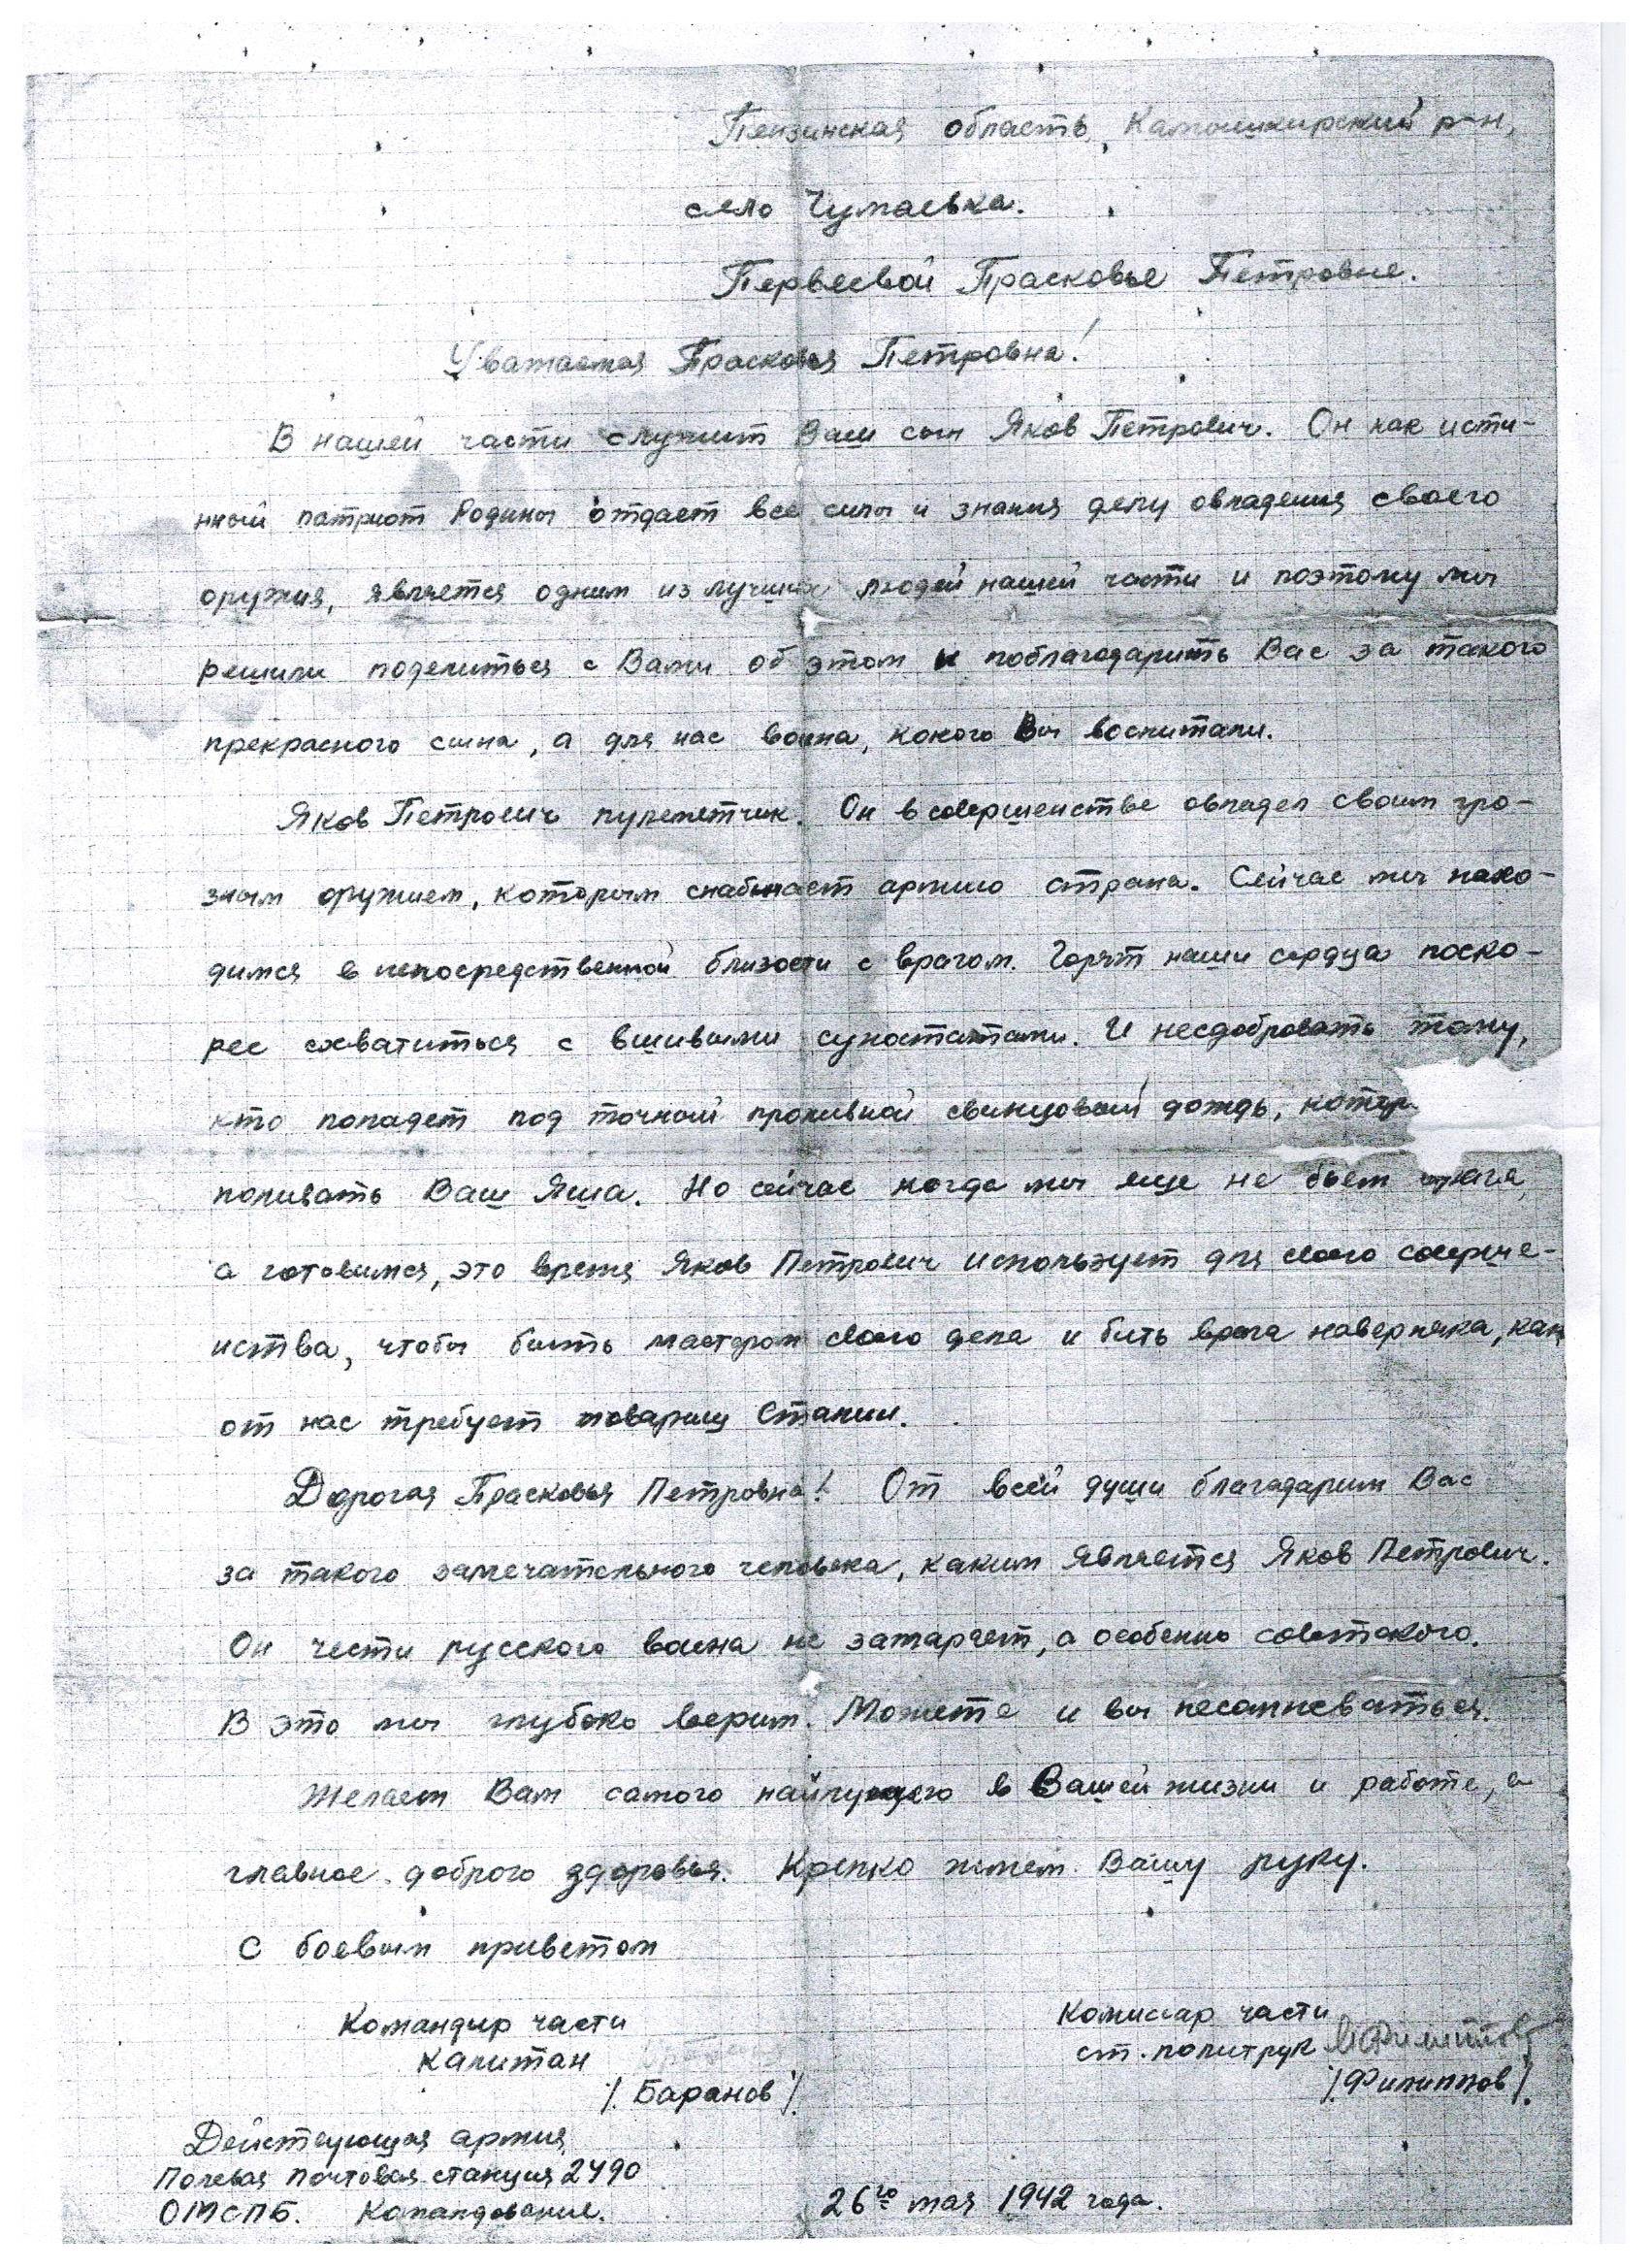 Пензинская область, Камышкирский р-н,
село Чумаевка.
Первеевой Прасковье Петровне.
Уважаемая Прасковья Петровна!
В нашей части служит Ваш сын Яков Петрович. Он как исти-
нный патриот Родины отдает все силы и знания делу овладения своего
оружия, является одним из лучших людей нашей части и поэтому мы
решили поделиться с Вами об этом и поблагодарить Вас за такого
прекрасного сына, а для нас воина, какого Вы воспитали.
Яков Петрович пулеметчик. Он в совершенстве овладел своим гро-
зным оружием, которым снабжает армию страна. Сейчас мы нахо-
димся в непосредственной близости с врагом. Горят наши сердца поско-
рее схватиться с вшивыми супостатами. И несдобровать тому,
кто попадет под точный проливной свинцовый дождь, котор
поливать Ваш Яша. Но сейчас когда мы еще не бьем врага,
а готовимся, это время Яков Петрович использует для своего соверше-
нства, чтобы быть мастером своего дела и бить врага наверняка, как
от нас требует товарищ Сталин.
Дорогая Прасковья Петровна! От всей души благодарим Вас
за такого замечательного человека, каким является Яков Петрович.
Он чести русского воина не замарает, а особенно советского.
В это мы глубоко верим. Можете и вы несомневаться.
Желаем Вам самого найлучщего в Вашей жизни и работе, а
главное доброго здоровья. Крепко жмем Вашу руку.
С боевым приветом
Командир части
Капитан
/. Баранов /.
Комиссар части
ст. политрук
/.Филиппов/.
Действующая армия
Полевая почтовая станция 2490
ОМСПБ. Командование.
26го мая 1942 года.